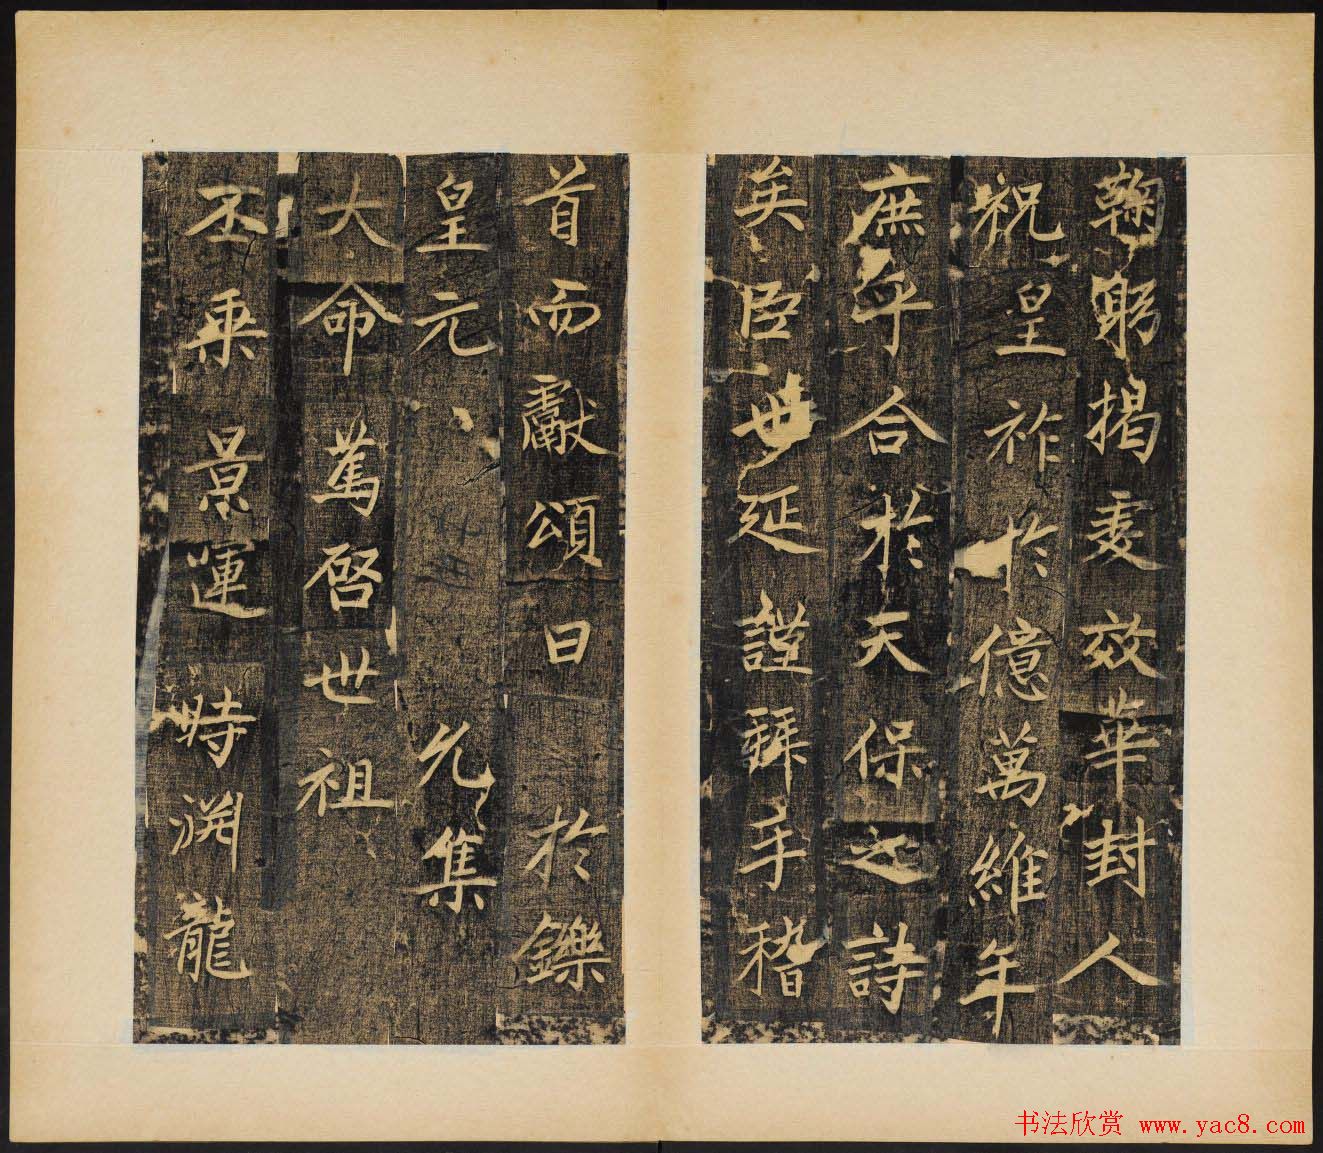 鞠躬揭虔效華封人
祝皇祚於億萬維年
庶乎合於天保之詩
矣臣世延謹拜手稽
首而獻頌曰於鑠
皇元允集
大命篤啓世祖
丕乘景運時渊龍
书法欣赏 www.yac8.com